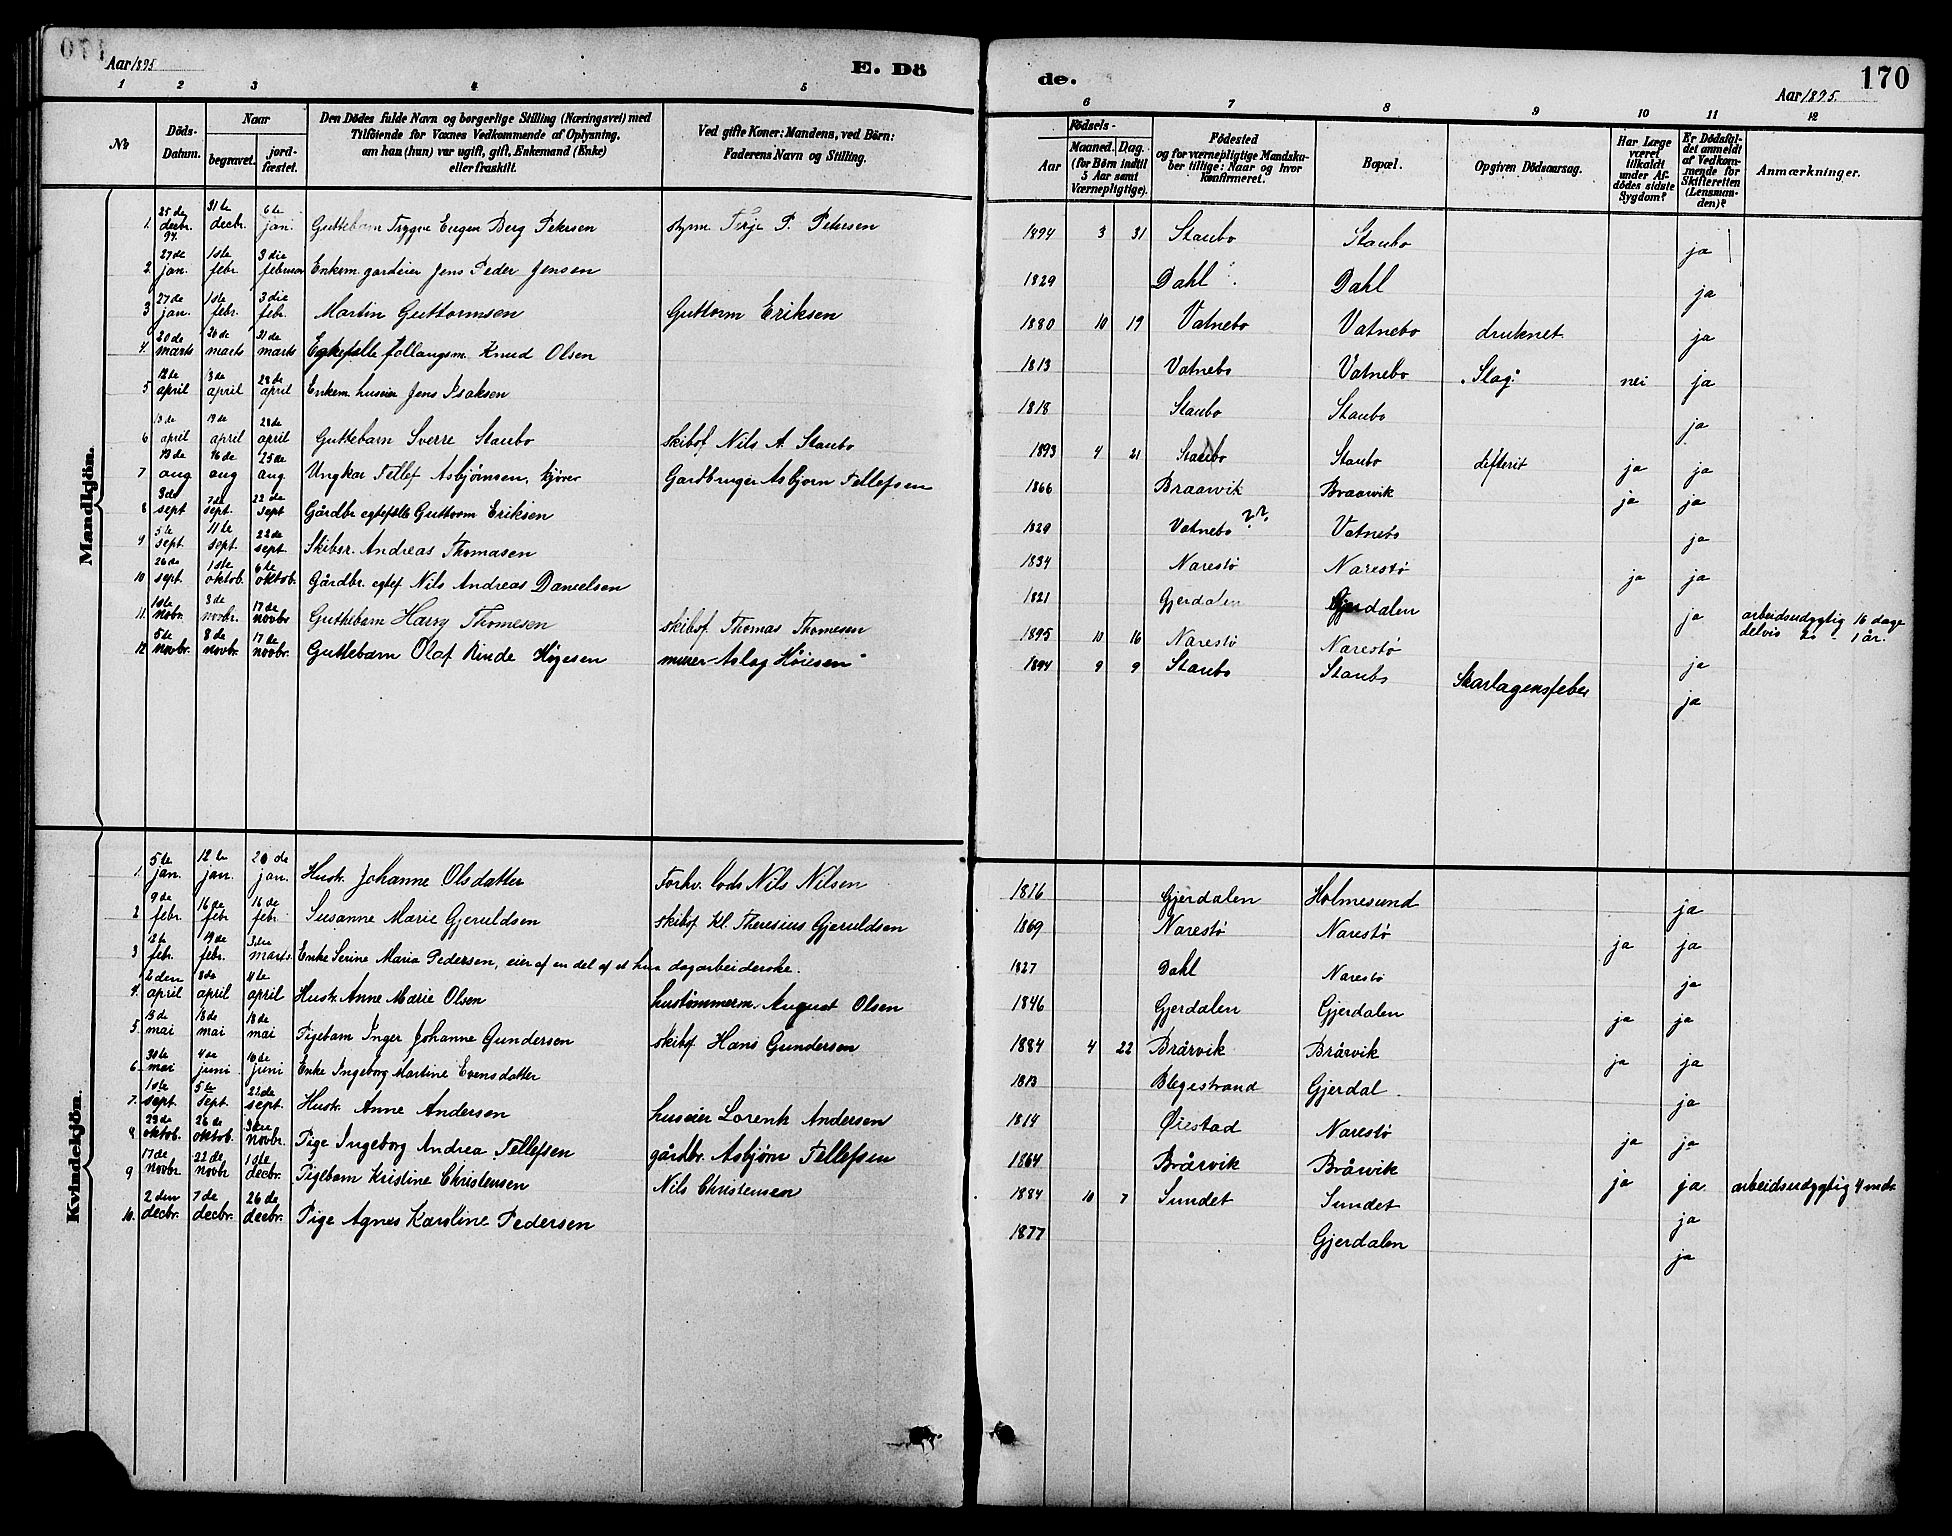 170
Aar 1895
E. Dö
de.
170
Aar 1895.
1 2 3 4 5
6 7 8 9 10 11 12
No
Döds-Datum.
Naar
begravet.
jordfæstet.
Den Dödes fulde Navn og borgerlige Stilling (Næringsvei) med
Tilföiende for Voxnes Vedkommende af Oplysning,
om han (hun) var ugift, gift, Enkemand (Enke)
eller fraskilt.
Ved gifte Koner: Mandens, ved Börn:
Faderens Navn og Stilling.
Födsels-
Aar
Maaned. Dag.
(for Börn indtil
5 Aar samt
Værnepligtige).
Födested
og for værnepligtige Mandska-
ber tillige: Naar og hvor
konfirmeret.
Bopæl.
Opgiven Dödsaarsag.
Har Læge
været
tilkaldt
under Af-
dödes sidste
Sygdom?
Er Dödsfal-
det anmeldt
af Vedkom-
mende for
Skifteretten
(Lensman-
den)?
Anmærkninger.
Mandkjön.
1. 25de decbr. 94. 31te decbr. 6te jan. Guttebarn Trygve Eugen Berg Petersen styrm Terje P. Petersen 1894 3 31 Staubo Staubo ja
2. 27de jan. 1ste febr. 3die februar Enkem. gardeier Jens Peder Jensen 1829 Dahl Dahl ja
3 27de jan. 1ste febr. 3die febr. Martin Guttormsen Guttorm Eriksen 1880 10 19 Vatnebo Vatnebo druknet ja
4. 20de marts 26de marts 31de marts Egtefælle Knud Olsen 1813 Vatnebo Vatnebo "Slag" nei ja
5 april april 28de april Enkem. huseier Jens Isaksen 1818 Staubo Staubo ja
6 13de april 19de april 28de april Guttebarn Sverre Staubo skibsf Nils A. Staubo 1893 4 21 Staubo Staubo difterit ja ja
7 13de aug 16de aug 25de aug Ungkar Tellef Asbjørnsen, Gardbruger Asbjørn Tellefsen 1866 Braarvik Braarvik ja ja
8 3de sept 7de sept. 22de sept Gårdbr egtefælle Guttorm Eriksen 1829 Vatnebo ?? Vatnebo ja
9 5te sept. 11te sept. 22de sept. Skibsr. Andreas Thomasen 1834 Narestø Narestø ja ja
10 26de sept. 1ste oktob. 6te oktob. Gårdbr. egtef Nils Andreas Danielsen 1821 Gjerdalen Gjerdalen ja arbeidsudygtig 16 dage
delvis 1 år.
11. 1ste novbr. 3de novbr. 17de novbr Guttebarn Harry Thomesen skibsf. Thomas Thomesen 1895 10 16 Narestø Narestø ja
12 5te novbr. 8de novbr. 17de novbr. Guttebarn Olaf Rinde Høgesen murer Aslag Høiesen 1894 9 9 Staubo Staubo Skarlagensfeber ja
Kvindekjön.
1. 5te jan. 12te jan. 20de jan. Hustr. Johanne Olsdatter Forhv. lods Nils Nilsen 1816 Gjerdalen Holmesund ja
2 9de febr. 16de febr 16de febr. Susanne Marie Gjeruldsen skibsf Kl. Theresius Gjeruldsen 1869 Narestø Narestø ja ja
3 12te febr. 19de febr. 3die marts. Enke Serine Marie Pedersen, eier af en del af et hus dagarbeiderske. 1827 Dahl Narestø ja
4. 2den april 8de april 4te april Hustr. Anne Marie Olsen hustømmerm. August Olsen 1846 Gjerdalen Gjerdalen ja ja
5. 13de mai 18de mai 18de mai Pigebarn Inger Johanne Gundersen skibsf Hans Gundersen 1884 4 22 Brårvik Brårvik ja ja
6 30te mai 4de juni 16de juni Enke Ingeborg Martine Evensdatter 1813 Blegestrand Gjerdal. ja
7. 1ste sept. 5te sept. 22de sept. Hustr. Anne Andersen huseier Lorentz Andersen 1814 Øiestad Narestø ja ja
8 23de oktob. 26de oktob. 3die novbr. Pige Ingeborg Andrea Tellefsen gårdbr. Asbjørn Tellefsen 1864 Brårvik Brårvik ja ja arbeidsudygtig 4 mdr.
9 17de novbr 22de novbr 1ste decbr. Pigebarn Kristine Christensen Nils Christensen 1884 10 7 Sundet Sundet ja
10. 2den decbr. 7de decbr. 26de decbr. Pige Agnes Karoline Pedersen 1877 Gjerdalen ja